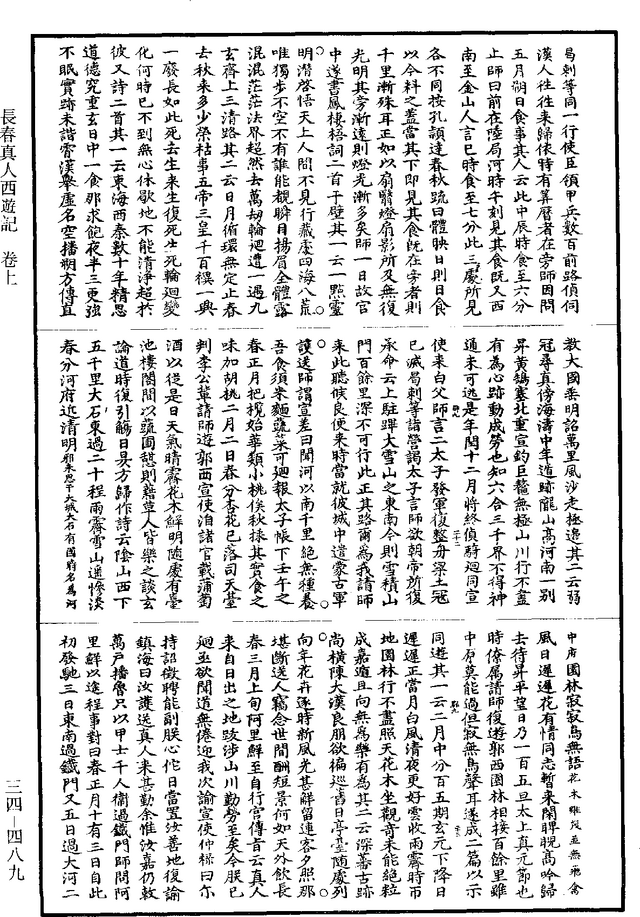 曷剌等同一行使臣領甲兵數百前路偵伺
漢人往往來歸依時有算曆者在旁師因問
五月朔日食事其人云此中辰時食至六分
止師曰前在陸局河時午刻見其食既又西
南至金山人言巳時食至七分此三處所見
各不同按孔穎達春秋疏曰體映日則日食
以今料之蓋當其下即見其食既在旁者則
千里漸殊耳正如以扇翳燈扇影所及無復
光明其旁漸遠則燈光漸多矣師一日故宮
中遂書鳳棲梧詞二首于壁其一云一點靈
明潛啓悟天上人間不見行藏處四海八荒
唯獨步不空不有誰能覩瞬目揚眉全體露
混混茫茫法界超然去萬劫輪迴遭一遇九
玄齊上三清路其二云日月循環無定止春
去秋來多少榮枯事五帝三皇千百禩一興
一廢長如此死去生來生復死生死輪迴變
化何時已不到無心休歇地不能清淨超於
彼又詩二首其一云東海西秦數十年精思
道德究重玄日中一食那求飽夜半三更強
不眠實跡未諧霄漢舉虛名空播朔方傳直
教大國垂明詔萬里風沙走極邊其二云弱
冠尋真傍海濤中年遁跡隴山高河南一別
昇黃鵠塞北重宣釣巨鼇無極山川行不盡
有為心跡動成勞也知六合三千界不得神
通未可逃是年閏十二月將終偵騎迴同宣
使來白父師言二太子發軍復整舟梁土寇
已滅曷剌等詣營謁太子言師欲朝帝所復
承命云上駐蹕大雪山之東南今則雪積山
門百餘里深不可行此正其路爾為我請師
來此聽候良便來時當就彼城中遣蒙古軍
護送師謂宣差曰聞河以南千里絕無種養
吾食須米麵蔬菜可迴報太子帳下壬午之
春正月把欖始華類小桃俟秋採其實食之
味如胡桃二月二日春分杏花已落司天臺
判李公輩請師遊郭西宣使洎諸官載蒲萄
酒以從是日天氣晴霽花木鮮明隨處有臺
池樓閣間以蔬圃憩則藉草人皆樂之談玄
論道時復引觴日昃方歸作詩云陰山西下
五千里大石東過二十程雨霽雪山遙慘淡
春分河府近清明邪米思干大城大石有國時名為河
中府園林寂寂鳥無語花木雖茂並無飛禽
風日遲遲花有情同志暫來閑睥睨高吟歸
去待昇平望日乃一百五旦太上真元節也
時僚屬請師復遊郭西園林相接百餘里雖
中原莫能過但寂無鳥聲耳遂成二篇以示
同遊其一云二月中分百五期玄元下降日
遲遲正當月白風清夜更好雲收雨霽時匝
地園林行不盡照天花木坐觀奇未能絕粒
成嘉遁且向無為樂有為其二云深蕃古跡
尚橫陳大漢良朋欲徧巡舊日亭臺隨處列
向年花卉逐時新風光甚解留連客夕照那
堪斷送人竊念世間酬短景何如天外飲長
春三月上旬阿里鮮至自行宮傳旨云真人
來自日出之地跋涉山川勤勞至矣今朕已
迴亟欲聞道無倦迎我次諭宣使仲祿曰尓
持詔徵聘能副朕心佗日當置汝善地復諭
鎮海曰汝護送真人來甚勤余惟汝嘉仍敕
萬戶播魯只以甲士千人衛過鐵門師問阿
里鮮以途程事對曰春正月十有三日自此
初發馳三日東南過鐵門又五日過大河二
長春真人西遊記 卷上
三四—四八九